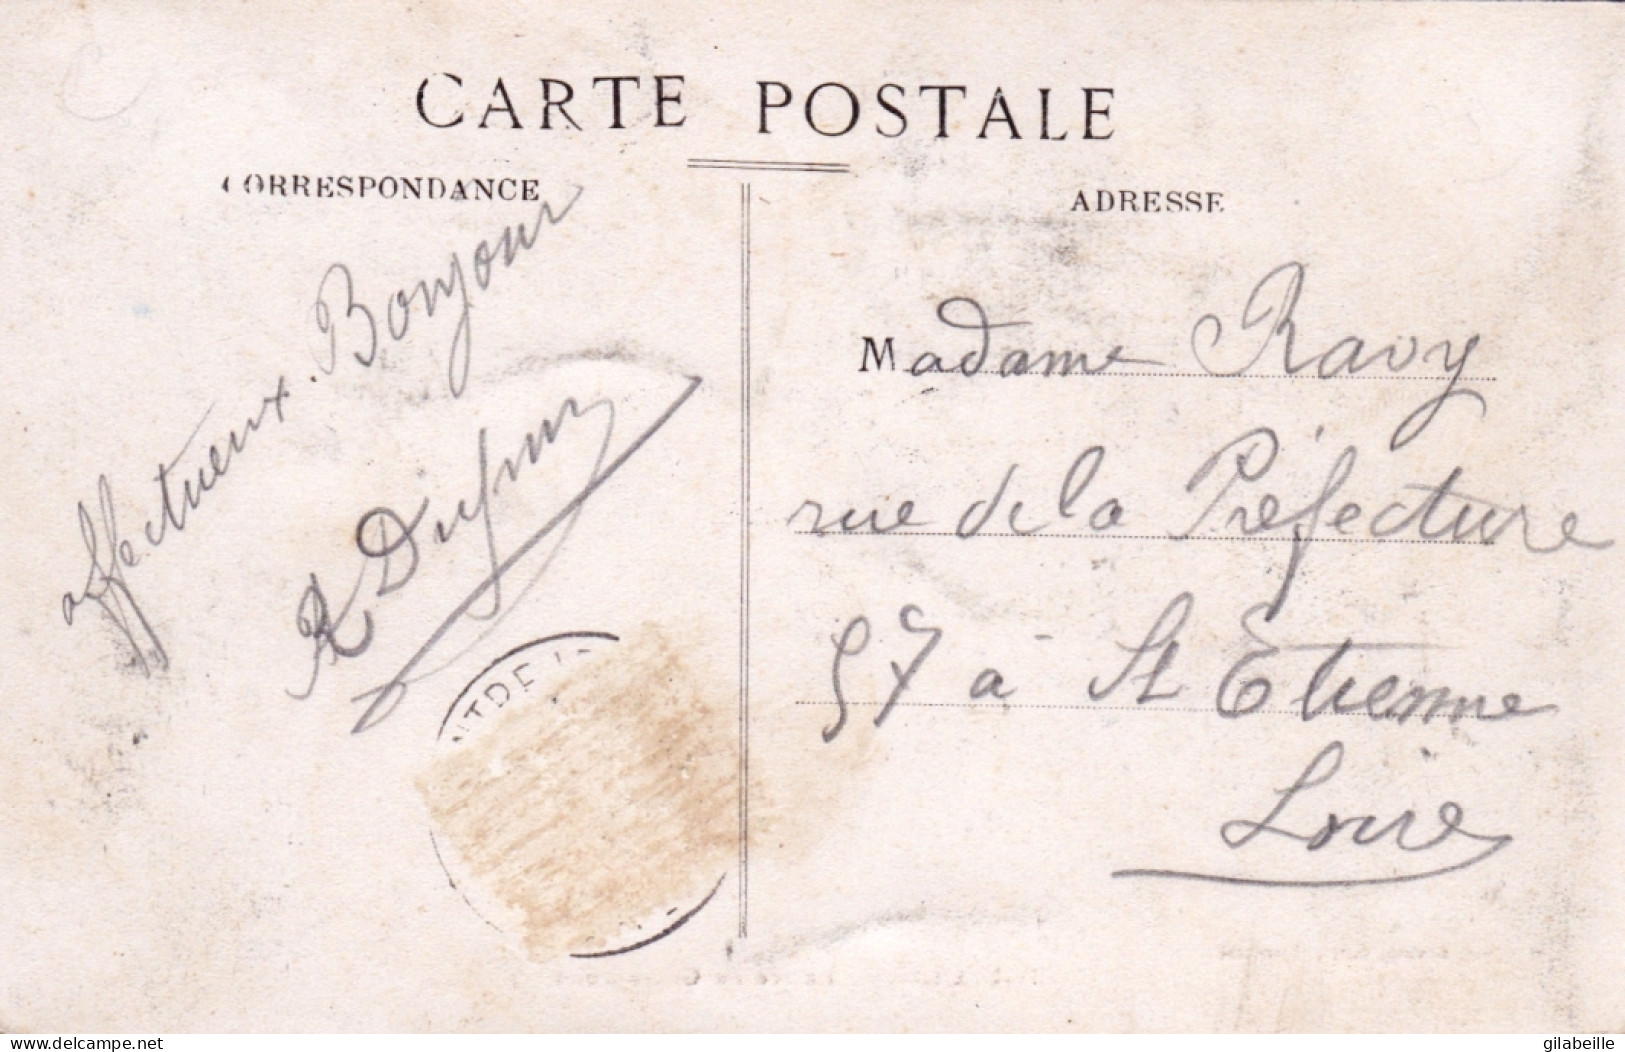 CARTE POSTALE
CORRESPONDANCE
ADRESSE
affectueux Bonjour
Madame Ravy
rue de la Préfecture
57 à St Etienne
Loire
delcampe.net
gilabeille